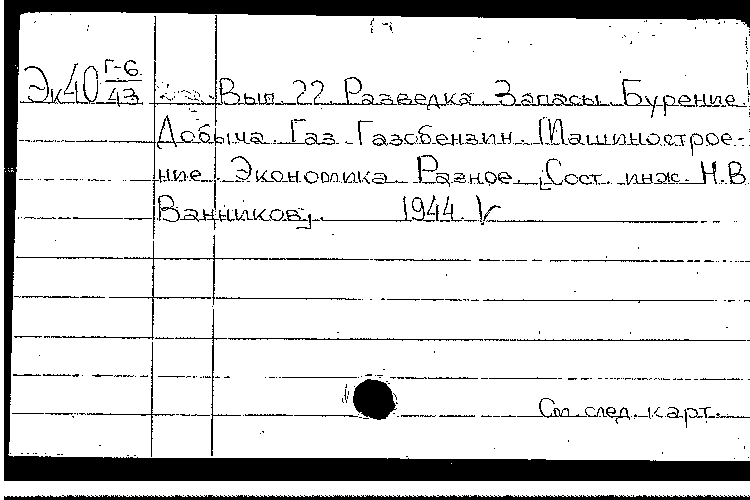 Эк40 Г-6/43 Вып. 22. Разведка. Запасы. Бурение.
Добыча. Газ. Газобензин. Машинострое-
ние. Экономика. Разное. [Сост. инж. Н.В.
Ванников]. 1944. V
См. след. карт.